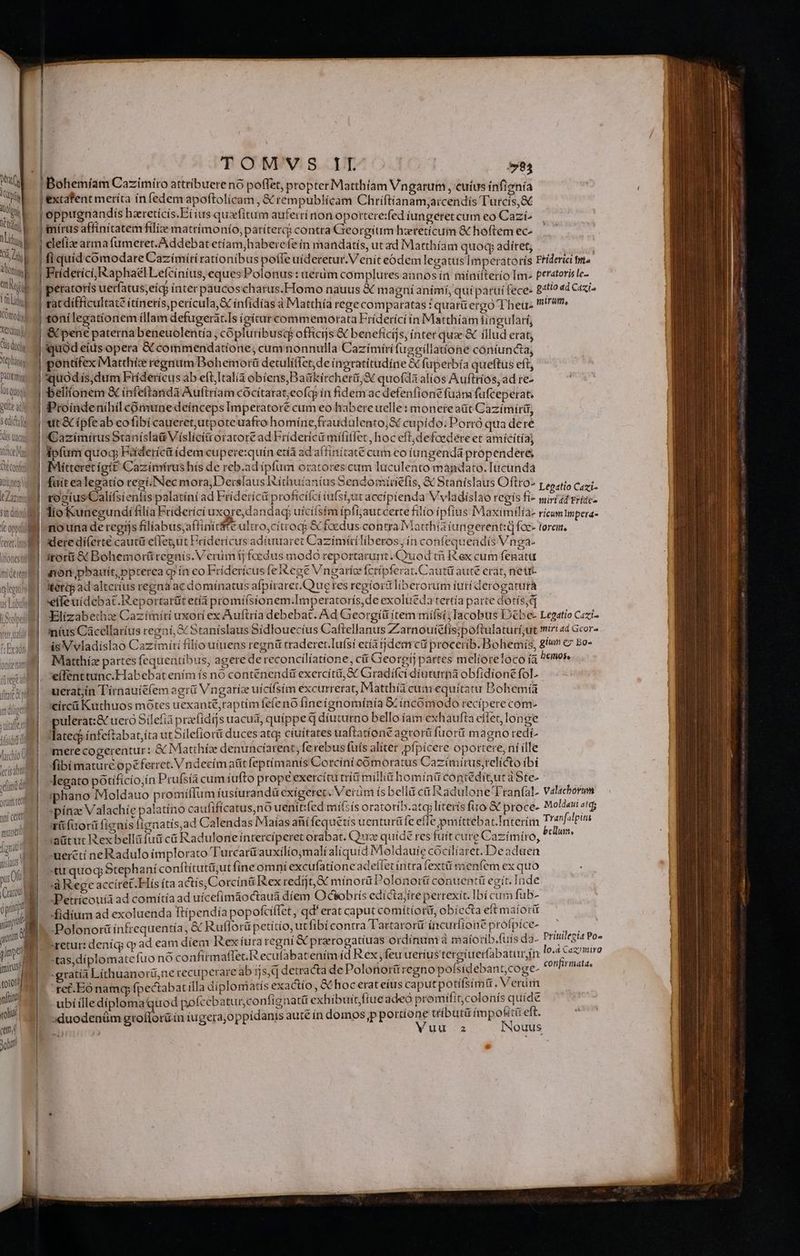 TOMVS II.
783
Bohemiam Cazimiro attribuere nō posset, propter Matthiam Vngarum, cuius insignia
extarent merita in sedem apostolicam, & rempublicam Christianam, arcendis Turcis, &
oppugnandis hæreticis. Ei ius quæsitum auferri non oportere: sed iungeret cum eo Cazi-
mirus affinitatem filiæ matrimonio, pariterq; contra Georgium hæreticum & hostem ec-
clesiæ arma sumeret. Addebat etiam, habere se in mandatis, ut ad Matthiam quoq; adiret,
si quid cōmodare Cazimiri rationibus posse uideretur. Venit eodem legatus Imperatoris
Friderici, Raphaël Lescinius, eques Polonus: uerùm complures annos in ministerio Im-
peratoris uersatus, eiq; inter paucos charus. Homo nauus & magni animi, qui parui fece-
rat difficultatē itineris, pericula, & insidias à Matthia rege comparatas: quarū ergo Theu-
toni legationem illam defugerāt. Is igitur commemorata Friderici in Matthiam singulari,
& pene paterna beneuolentia, cōpluribusq; officijs & beneficijs, inter quæ & illud erat,
quòd eius opera & commendatione, cum nonnulla Cazimiri sugillatione coniuncta,
pontifex Matthiæ regnum Bohemorū detulisset, de ingratitudine & superbia questus est,
quòd is, dum Fridericus ab est, Italiā obiens, Baūkircherū, & quosdā alios Austrios, ad re-
bellionem & infestandā Austriam cōcitarat, eosq; in fidem ac defensionē suam susceperat.
Proinde nihil cōmune deinceps Imperatorē cum eo habere uelle: monere aūt Cazimirū,
ut & ipse ab eo sibi caueret, utpote uafro homine, fraudulento, & cupido. Porrò qua de re
Cazimirus Stanislaū Vislicīū oratorē ad Fridericū misisset, hoc est, de fœdere et amicitia,
ipsum quoq; Fridericū idem cupere: quin etiā ad affinitatē cum eo iungendā propendere,
Mitteret igit̄ Cazimirus his de reb. ad ipsum oratores cum luculento mandato. Iucunda
fuit ea legatio regi. Nec mora, Derslaus Rithuianius Sendomiriēsis, & Stanislaus Ostro-
rogius Calisiensis palatini ad Fridericū proficisci iussi, ut accipienda Vvladislao regis fi-
lio Kunegundi filia Friderici uxore, dandaq; uicissim ipsi, aut certe filio ipsius Maximilia-
no una de regijs filiabus, affinitatē ultro, citroq; & fœdus contra Matthiā iungerent: q̄d fœ-
dere diserte cautū esset, ut Fridericus adiuuaret Cazimiri liberos, in consequendis Vnga-
rorū & Bohemorū regnis. Verùm ij fœdus modò reportarunt. Quod tū Rex cum senatu
non ꝓbauit, ꝓpterea q̄ in eo Fridericus se Regē Vngariæ scripserat. Cautū autē erat, neut-
ter q̄ ad alterius regna ac dominatus aspiraret. Quę res regiorū liberorum iuri derogatura
esse uidebat̄. Reportarūt etiā promissionem Imperatoris, de exoluēda tertia parte dotis, q̄
Elizabethæ Cazimiri uxori ex Austria debebat̄. Ad Georgiū item missi, Iacobus Dēbe-
nius Cācellarius regni, & Stanislaus Sidlouecius Castellanus Zarnouiēsis: postulaturi, ut
is Vvladislao Cazimiri filio uiuens regnū traderet. Iussi etiā ijdem cū procerib. Bohemis,
Matthiæ partes sequentibus, agere de reconciliatione, cū Georgij partes meliore loco iā
essent tunc. Habebat enim is nō contēnendū exercitū, & Gradisci diuturnā obsidionē sol-
uerat, in Tirnauiēsem agrū Vngariæ uicissim excurrerat, Matthiā cum equitatu Bohemiā
circū Kuthuos mōtes uexantē, raptim sese nō sine ignominia & incōmodo recipere com-
pulerat: & uerò Silesiā præsidijs uacuā, quippe q̄ diuturno bello iam exhausta esset, longe
lateq; infestabat, ita ut Silesiorū duces atq; ciuitates uastatione agrorū suorū magno redi-
mere cogerentur: & Matthiæ denunciarent, se rebus suis aliter ꝓspicere oportere, ni ille
sibi mature opē ferret. Vndecim aūt septimanis Corcini cōmoratus Cazimirus, relicto ibi
legato pōtificio, in Prussiā cum iusto prope exercitu triū milliū hominū contēdit, ut à Ste-
phano Moldauo promissum iusiurandū exigeret. Verùm is bellū cū Radulone Transal-
pinæ Valachię palatino causificatus, nō uenit: sed missis oratorib. atq; literis suo & proce-
rū suorū signis signatis, ad Calendas Maias añi sequētis uenturū se esse ꝓmittebat. Interim
aūt ut Rex bellū suū cū Radulone interciperet orabat. Quæ quidē res fuit curę Cazimiro,
uerēti ne Radulo implorato Turcarū auxilio, mali aliquid Moldauię cōciliaret. De aduen
tu quoq; Stephani constitutū, ut sine omni excusatione adesset intra sextū mensem ex quo
à Rege acciret̄. His ita actis, Corcinū Rex redijt, & minorū Polonorū conuentū egit. Inde
Petricouiā ad comitia ad uicesimāoctauā diem Octobris edicta, ire perrexit. Ibi cum sub-
sidium ad exoluenda stipendia poposcisset, qd' erat caput comitiorū, obiecta est maiorū
Polonorū infrequentia, & Russorū petitio, ut sibi contra Tartarorū incursionē prospice-
retur: deniq; q̄ ad eam diem Rex iura regni & prærogatiuas ordinum à maiorib. suis da-
tas, diplomate suo nō confirmasset. Recusabat enim id Rex, seu uerius tergiuersabatur, in
gratiā Lithuanorū, ne recuperare ab ijs, q̄ detracta de Polonorū regno possidebant, coge-
ret̄. Eò namq; spectabat illa diplomatis exactio, & hoc erat eius caput potissimū. Verùm
ubi ille diploma quod poscebatur, consignatū exhibuit, siue adeò promisit, colonis quidē
duodenūm grossorū in iugera, oppidanis autē in domos, ꝓ portione tributū impositū est.
Vuu 2
Nouus
Friderici Im-
peratoris le-
gatio ad Cazi-
mirum.
Legatio Cazi-
miri ad Fride-
ricum Impera-
torem.
Legatio Cazi-
miri ad Geor-
gium & Bo-
hemos.
Valachorum
Moldaui atq;
Transalpini
bellum.
Priuilegia Po-
lo. à Cazimiro
confirmata.